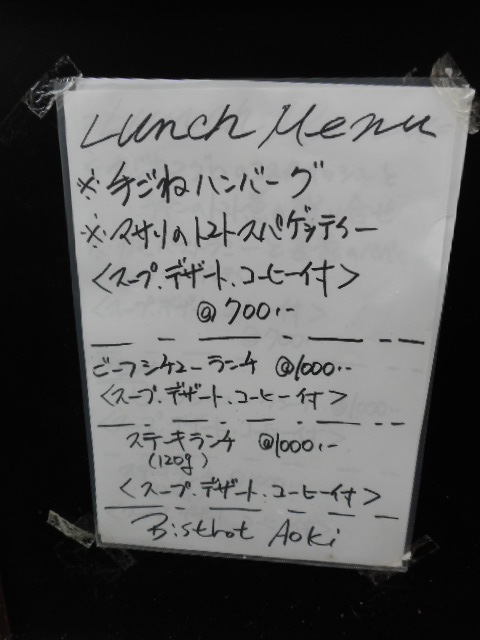 Lunch Menu
※手ごねハンバーグ
※アサリのトマトスパゲッティー
<スープ.デザート.コーヒー付>
@700.-
ビーフシチューランチ @1000.-
<スープ.デザート.コーヒー付>
ステーキランチ @1000.-
(120g)
<スープ.デザート.コーヒー付>
Bistrot Aoki